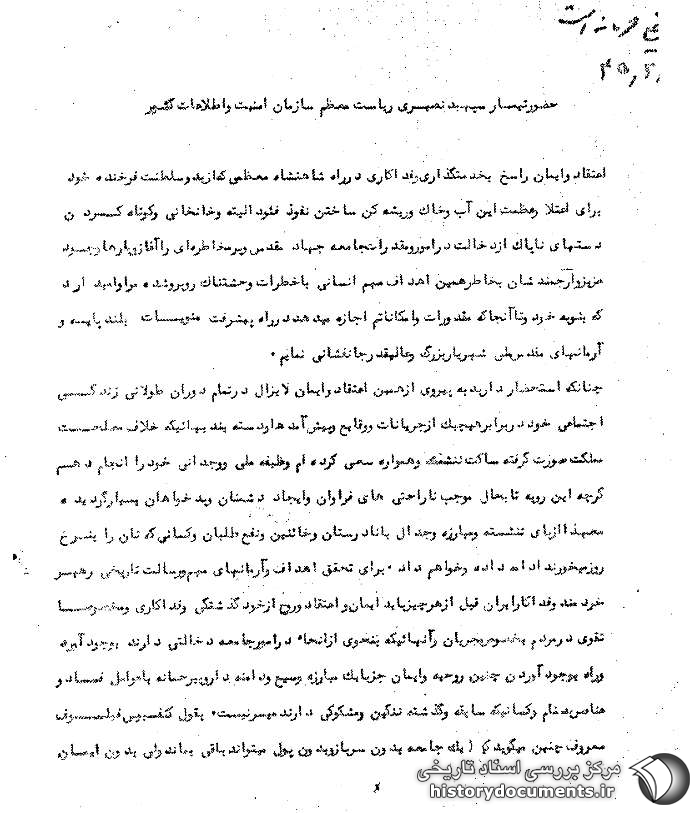 خیلی محرمانه است
حضور تیمسار سپهبد نصیری ریاست معظم سازمان امنیت و اطلاعات کشور
اعتقاد و ایمان راسخ بخدمتگذاری و فداکاری در راه شاهنشاه معظمی که از بدو سلطنت فرخنده خود
برای اعتلا و عظمت این آب و خاک و ریشه کن ساختن نفوذ فئودالیته و خانخانی و کوتاه کسردن
دستهای ناپاک از دخالت در امور و مقدرات جامعه جهاد مقدس و پر مخاطره‌ای را آغاز و بارها وجسود
عزیز و ارجمندشان بخاطر همین اهداف مهم انسانی با خطرات وحشتناک روبرو شده مرا وامیدارد
که بنوبه خود و تا آنجا که مقدورات و امکاناتم اجازه میدهد در راه پیشرفت منویات بلند پایه و
آرمانهای مقدس ملی شهریار بزرگ و عالیقدر جانفشانی نمایم ۰
چنانکه استحضار دارید به پیروی از همین اعتقاد و ایمان لایزال در تمام دوران طولانی زندگسی
اجتماعی خود در برابر هیچیک از جریانات و وقایع و پیش آمدها و دسته بندیهائیکه خلاف مصلحت
مملکت صورت گرفته ساکت ننشسته و همواره سعی کرده ام وظیفه ملی و وجدانی خود را انجام دهم
گرچه این رویه تا بحال موجب ناراحتی های فراوان و ایجاد دشمنان و بدخواهان بسیار گردیده
معهذا از پای ننشسته و مبارزه و جدال با نادرستان و خائنین و نفع طلبان و کسانی که نان را بنسرخ
روز میخورند ادامه داده و خواهم داد ۰ برای تحقق اهداف و آرمانهای مهم و رسالت تاریخی رهبسر
خردمند و فداکار ایران قبل از هر چیز باید ایمان و اعتقاد و روح از خود گذشتگی و فداکاری و مخصوصسا
تقوی در مردم بخصوص مجریان و آنهائیکه بنحوی از انحاء در امور جامعه دخالتی دارند بوجود آورد
و راه بوجود آوردن چنین روحیه و ایمان جز با یک مبارزه وسیع و دامنه دار و بیرحمانه با عوامل فسساد و
عناصر بدنام و کسانیکه سابقه و گذشته ننگین و مشکوکی دارند میسر نیست ۰ بقول کنفسیوس فیلسسوف
معروف چنین میگوید که ( یک جامعه بدون سرباز و بدون پول میتواند باقی بماند ولی بدون ایمسان
مرکز بررسی اسناد تاریخی
historydocuments.ir